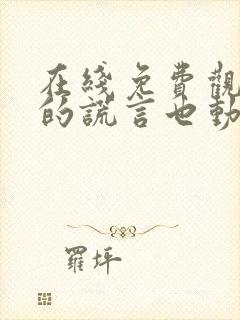 在綫免費觀
的謊言也動
羅坪